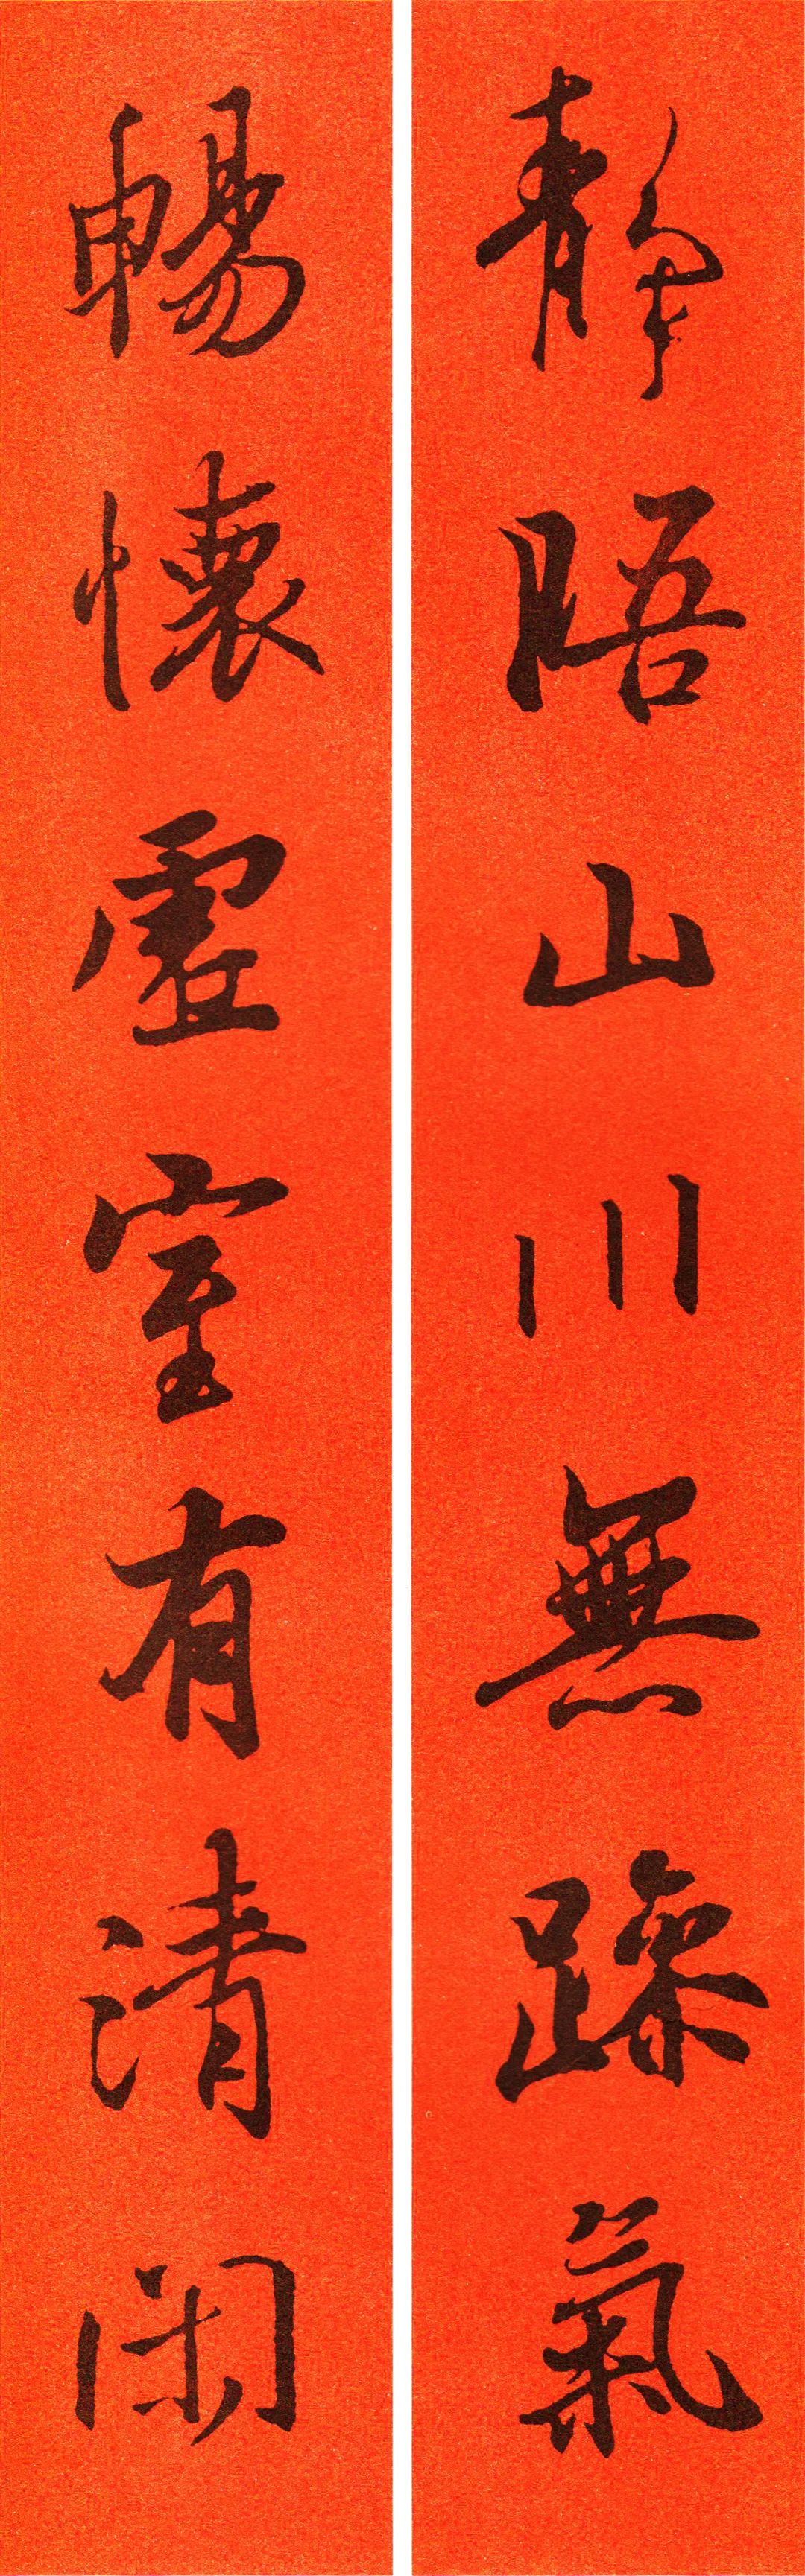 靜晤山川無躁氣
暢懷虛室有清閑